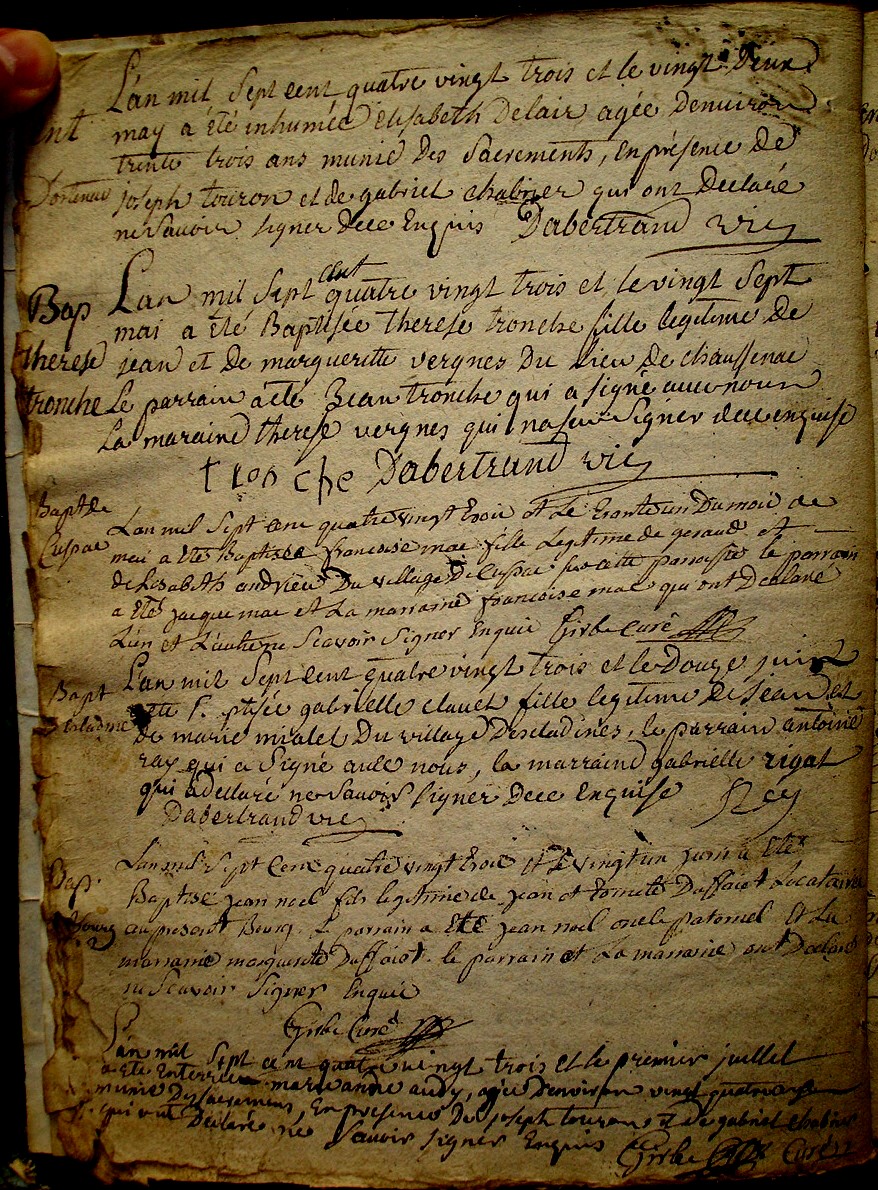 L'an mil sept cent quatre vingt trois et le vingt Deux
nt may a été inhumée Elisabeth Delair agée Denviron
trente trois ans munie Des Sacrements, en présence de
joseph touron et de gabriel chabrier qui ont Declaré
ne Savoir signer Dece Enquis Dabertrand vic
Bap L'an mil Sept cent quatre vingt trois et le vingt Sept
mai a été Baptisée therese tronche fille legitime de
therese jean et de margueritte vergnes Du Lieu de chaussenac
tronche Le parrain a eté jean tronche qui a signé avec nous
La maraine therese vergnes qui na seu signer dece enquise
tronche Dabertrand vic
Bapt de L'an mil sept cent quatre vingt trois et Le trente un Du mois de
Cuspac mai a eté Baptisée françoise mac fille Legitime de geraud et
de Lisabeth andrieu Du village De Cuspac sur cette parroisse le parrain
a eté jacque mac et La marraine françoise mac qui ont Declaré
L'un et L'autre ne Scavoir Signer Enquis Girbe Curé
Bapt L'an mil Sept cent quatre vingt trois et le Douze juin
a eté B. ptisée gabrielle clauet fille legitime De jean et
de marie mialet Du village Descladines, le parrain antoine
ray qui a Signé avec nous, la marraine gabrielle rigat
qui a declaré ne Savoir signer Dece Enquise Rey
Dabertrand vic
Bap. L'an mil Sept Cent quatre vingt trois et le vingt un juin a Eté
Baptisé jean noel fils legitime de jean et Duffaiot Locataire
Bourg au present Bourg. Le parrain a Eté jean noel oncle paternel et La
marraine marguerite Duffaiot. le parrain et La marraine ont Declaré
ne Scavoir Signer Enquis
Girbe Curé
L'an mil Sept cent quatre vingt trois et le premier juillet
a eté Enterrée marie anne audy, agée Denviron vingt quatre ans
munie Des sacremens, En presence De joseph touron et de gabriel chabrier
qui ont Declaré ne Savoir signer Enquis Girbe Curé